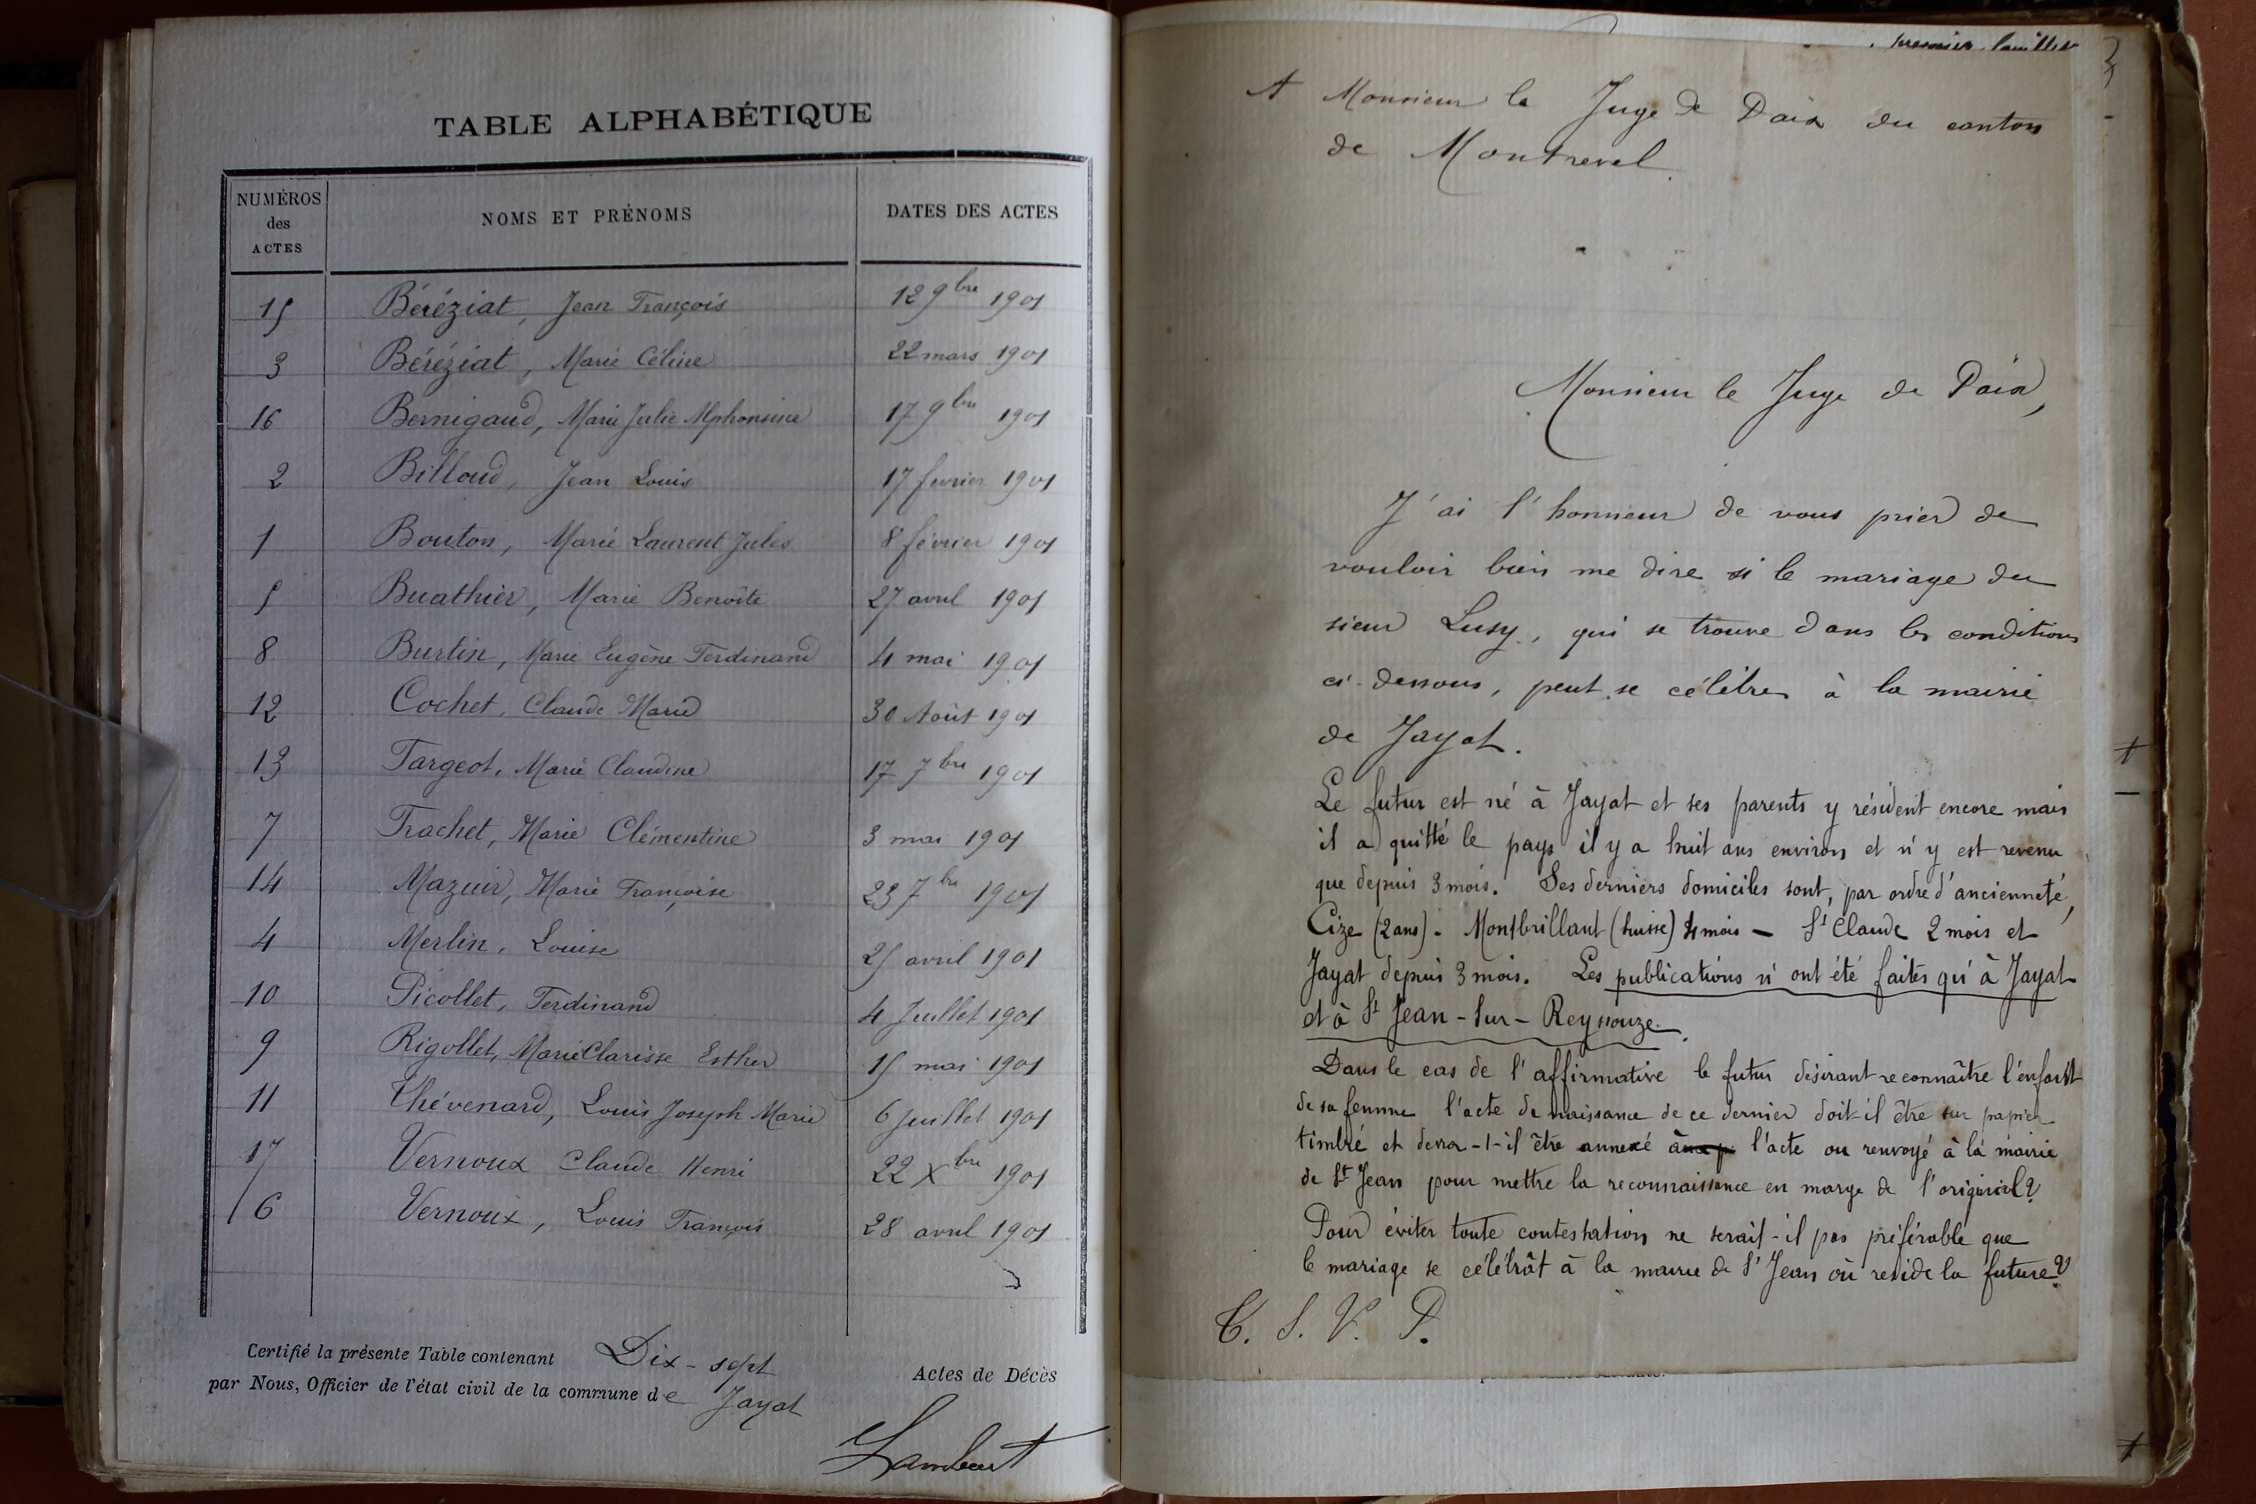 TABLE ALPHABÉTIQUE
NUMÉROS des ACTES NOMS ET PRÉNOMS DATES DES ACTES
15 Béréziat, Jean François 12 9bre 1901
3 Béréziat, Marie Céline 22 mars 1901
16 Bernigaud, Marie Julie Alphonsine 17 9bre 1901
2 Billoud, Jean Louis 17 février 1901
1 Bouton, Marie Laurent Jules 8 février 1901
5 Buathier, Marie Benoîte 27 avril 1901
8 Burtin, Marie Eugène Ferdinand 4 mai 1901
12 Cochet, Claude Marie 30 Août 1901
13 Fargeot, Marie Claudine 17 7bre 1901
7 Frachet, Marie Clémentine 3 mai 1901
14 Mazuir, Marie Françoise 23 7bre 1901
4 Merlin, Louise 25 avril 1901
10 Picollet, Ferdinand 4 Juillet 1901
9 Rigollet, Marie Clarisse Esther 15 mai 1901
11 Thévenard, Louis Joseph Marie 6 Juillet 1901
17 Vernoux Claude Henri 22 Xbre 1901
6 Vernoux, Louis François 28 avril 1901
Certifié la présente Table contenant Dix-sept Actes de Décès
par Nous, Officier de l'état civil de la commune de Jayat
Lambert
premier
A Monsieur le Juge de Paix du canton
de Montrevel.
Monsieur le Juge de Paix,
J'ai l'honneur de vous prier de
vouloir bien me dire si le mariage du
sieur Lusy, qui se trouve dans les conditions
ci-dessous, peut se célébrer à la mairie
de Jayat.
Le futur est né à Jayat et ses parents y résident encore mais
il a quitté le pays il y a huit ans environ et n'y est revenu
que depuis 3 mois. Ses derniers domiciles sont, par ordre d'ancienneté,
Cize (2 ans) - Montbrillant (suisse) 4 mois - St Claude 2 mois et
Jayat depuis 3 mois. Les publications n'ont été faites qu'à Jayat
et à St Jean-sur-Reyssouze.
Dans le cas de l'affirmative le futur désirant reconnaître l'enfant
de sa femme l'acte de naissance de ce dernier doit-il être sur papier
timbré et devra-t-il être annexé à l'acte ou renvoyé à la mairie
de St Jean pour mettre la reconnaissance en marge de l'original?
Pour éviter toute contestation ne serait-il pas préférable que
le mariage se célébrât à la mairie de St Jean où réside la future?
T. S. V. P.